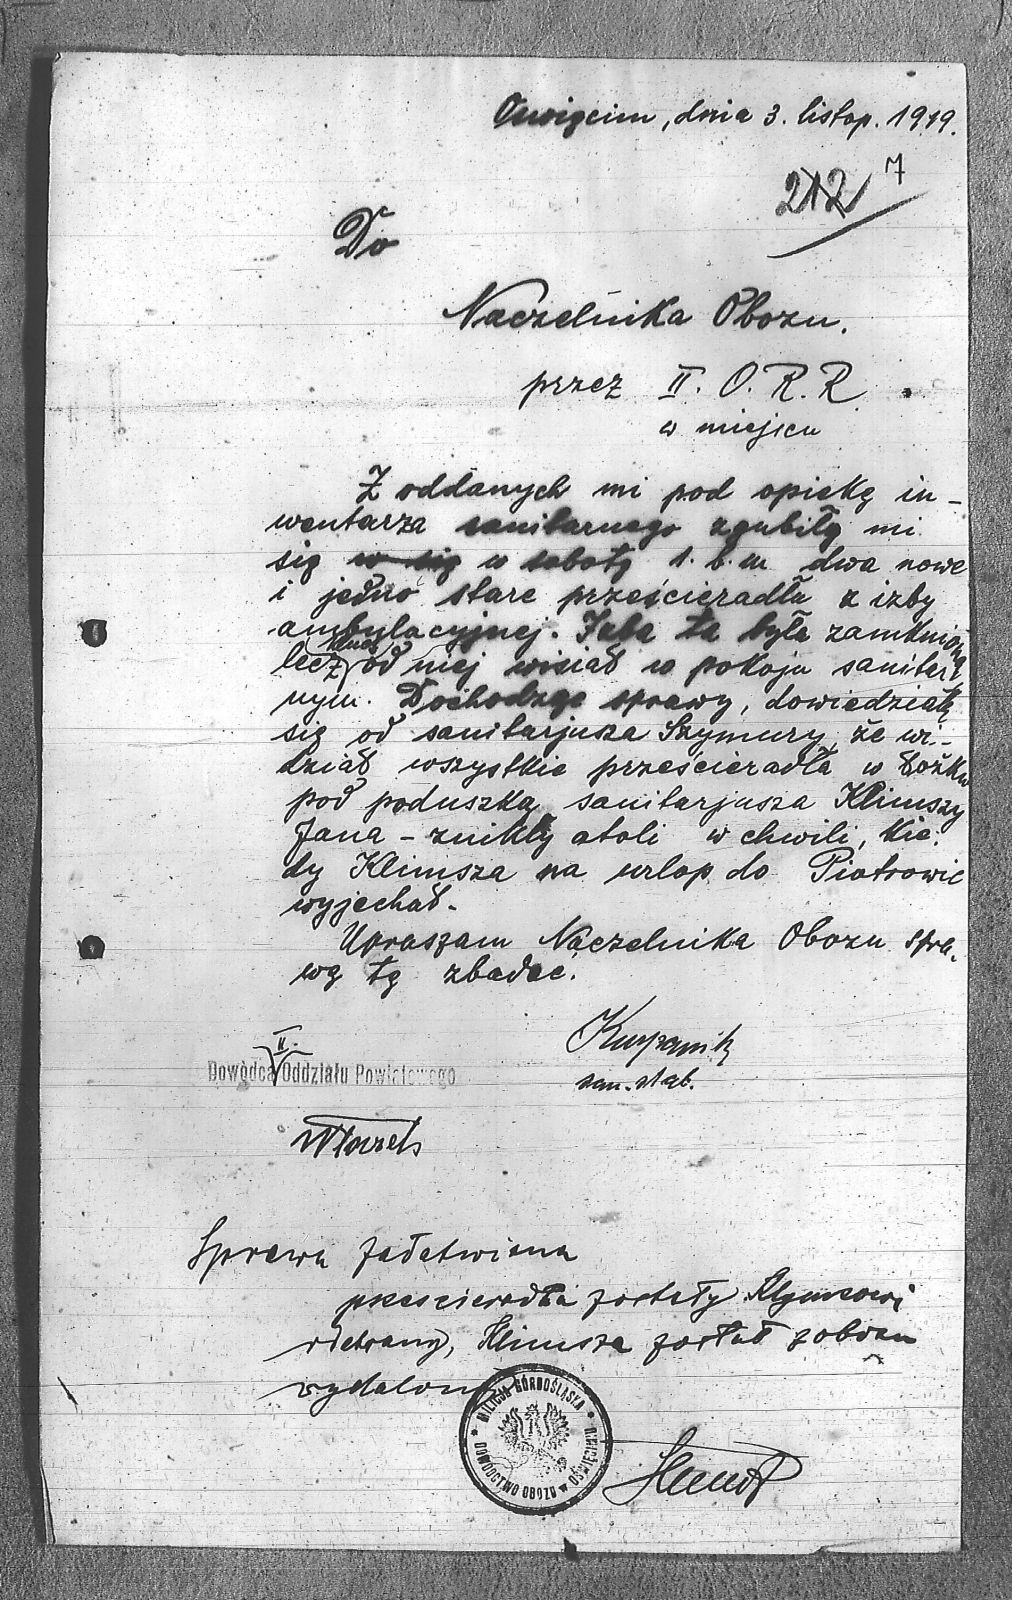 Oswięcim, dnia 3. listop. 1919.
212 7
Do
Naczelnika Obozu.
przez II. O. R. R.
w miejscu
Z oddanych mi pod opiekę in-
wentarza sanitarnego zgubiły mi
się w się w sobotę 1. b. m. dwa nowe
i jedno stare prześcieradła z izby
ambulacyjnej. Izba ta była zamknięta
lecz klucz od niej wisiał w pokoju sanitar-
nym. Dochodząc sprawy, dowiedziałę
się od sanitarjusza Szymury, że wi-
dział wszystkie prześcieradła w łóżku
pod poduszką sanitarjusza Klimszy
Jana - znikły atoli w chwili, kie-
dy Klimsza na urlop do Piotrowic
wyjechał.
Upraszam Naczelnika Obozu spra-
wę tę zbadać.
II.
Dowódca Oddziału Powiatowego
san. stab.
Sprawa załatwiona
prześcieradła zostały
odebrany, Klimsza został z obozu
wydalony
MILICJA GÓRNOŚLĄSKA
DOWÓDCTWO OBOZU w OŚWIĘCIMIU